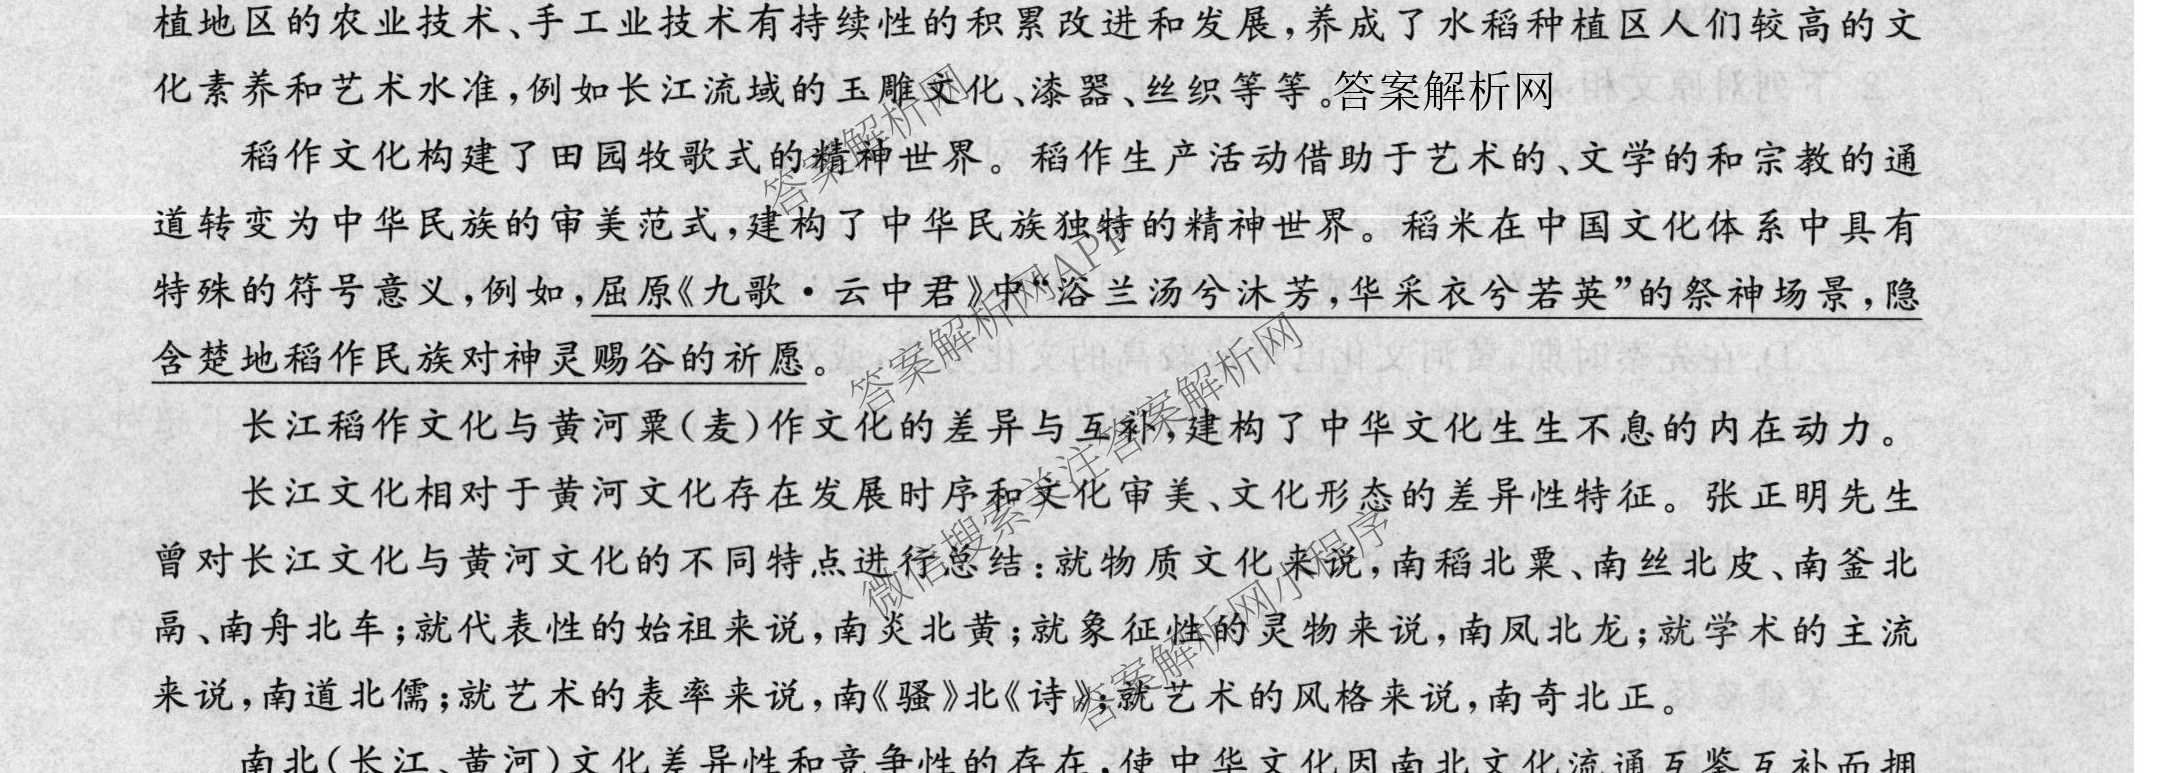 植地区的农业技术、手工业技术有持续性的积累改进和发展,养成了水稻种植区人们较高的文
化素养和艺术水准,例如长江流域的玉雕文化、漆器、丝织等等。答案解析网
稻作文化构建了田园牧歌式的精神世界。稻作生产活动借助于艺术的、文学的和宗教的通
道转变为中华民族的审美范式,建构了中华民族独特的精神世界。稻米在中国文化体系中具有
特殊的符号意义,例如,屈原《九歌·云中君》中“浴兰汤兮沐芳,华采衣兮若英”的祭神场景,隐
含楚地稻作民族对神灵赐谷的祈愿。
长江稻作文化与黄河粟(麦)作文化的差异与互补,建构了中华文化生生不息的内在动力。
长江文化相对于黄河文化存在发展时序和文化审美、文化形态的差异性特征。张正明先生
曾对长江文化与黄河文化的不同特点进行总结:就物质文化来说,南稻北粟、南丝北皮、南釜北
鬲、南舟北车;就代表性的始祖来说,南炎北黄;就象征性的灵物来说,南凤北龙;就学术的主流
来说,南道北儒;就艺术的表率来说,南《骚》北《诗》;就艺术的风格来说,南奇北正。
南北(长江、黄河)文化差异性和竞争性的存在,使中华文化因南北文化流通互鉴互补而拥
答案解析网
答案解析网APP
微信搜索关注答案解析网
答案解析网小程序